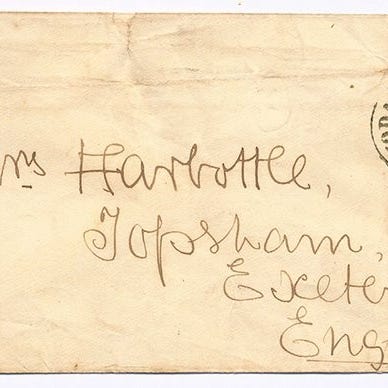 rs Harbottle,
Topsham,
Exete
Eng